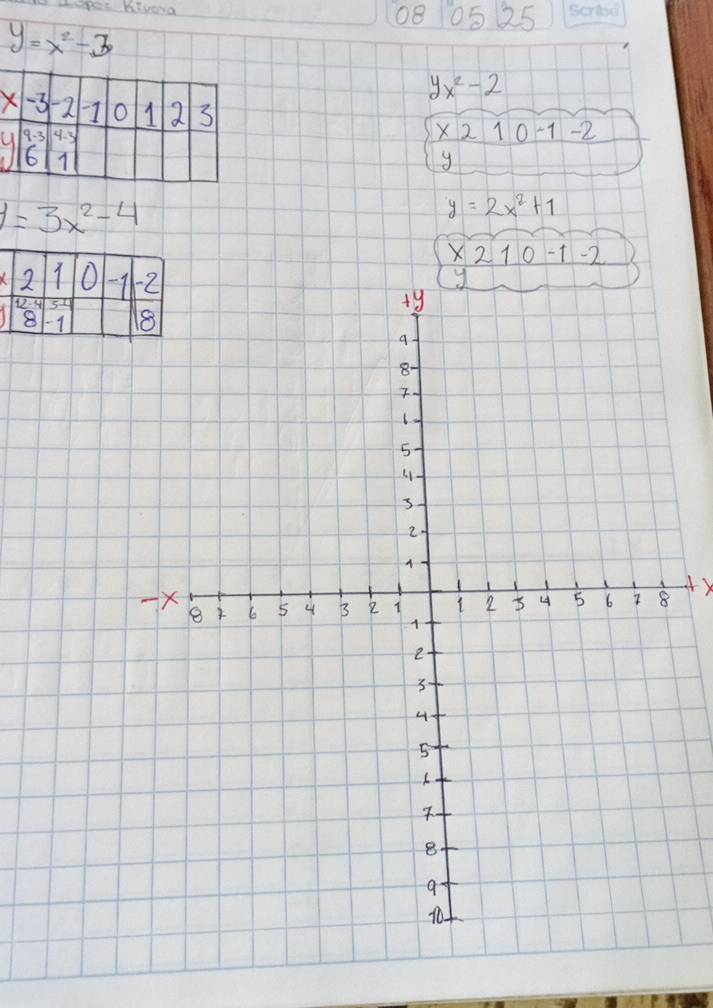 Rivera
08 05 25 Scribe
y = x² - 3
x -3 -2 -1 0 1 2 3
9-3 4-3
y 6 1
yx² - 2
x 2 1 0 -1 -2
y
y = 3x² - 4
x 2 1 0 -1 -2
12-4
y 8 -1 8
y = 2x² + 1
x 2 1 0 -1 -2
y
+y
9
8
7
6
5
4
3
2
1
-x 8 7 6 5 4 3 2 1 1 2 3 4 5 6 7 8 +x
1
2
3
4
5
6
7
8
9
10